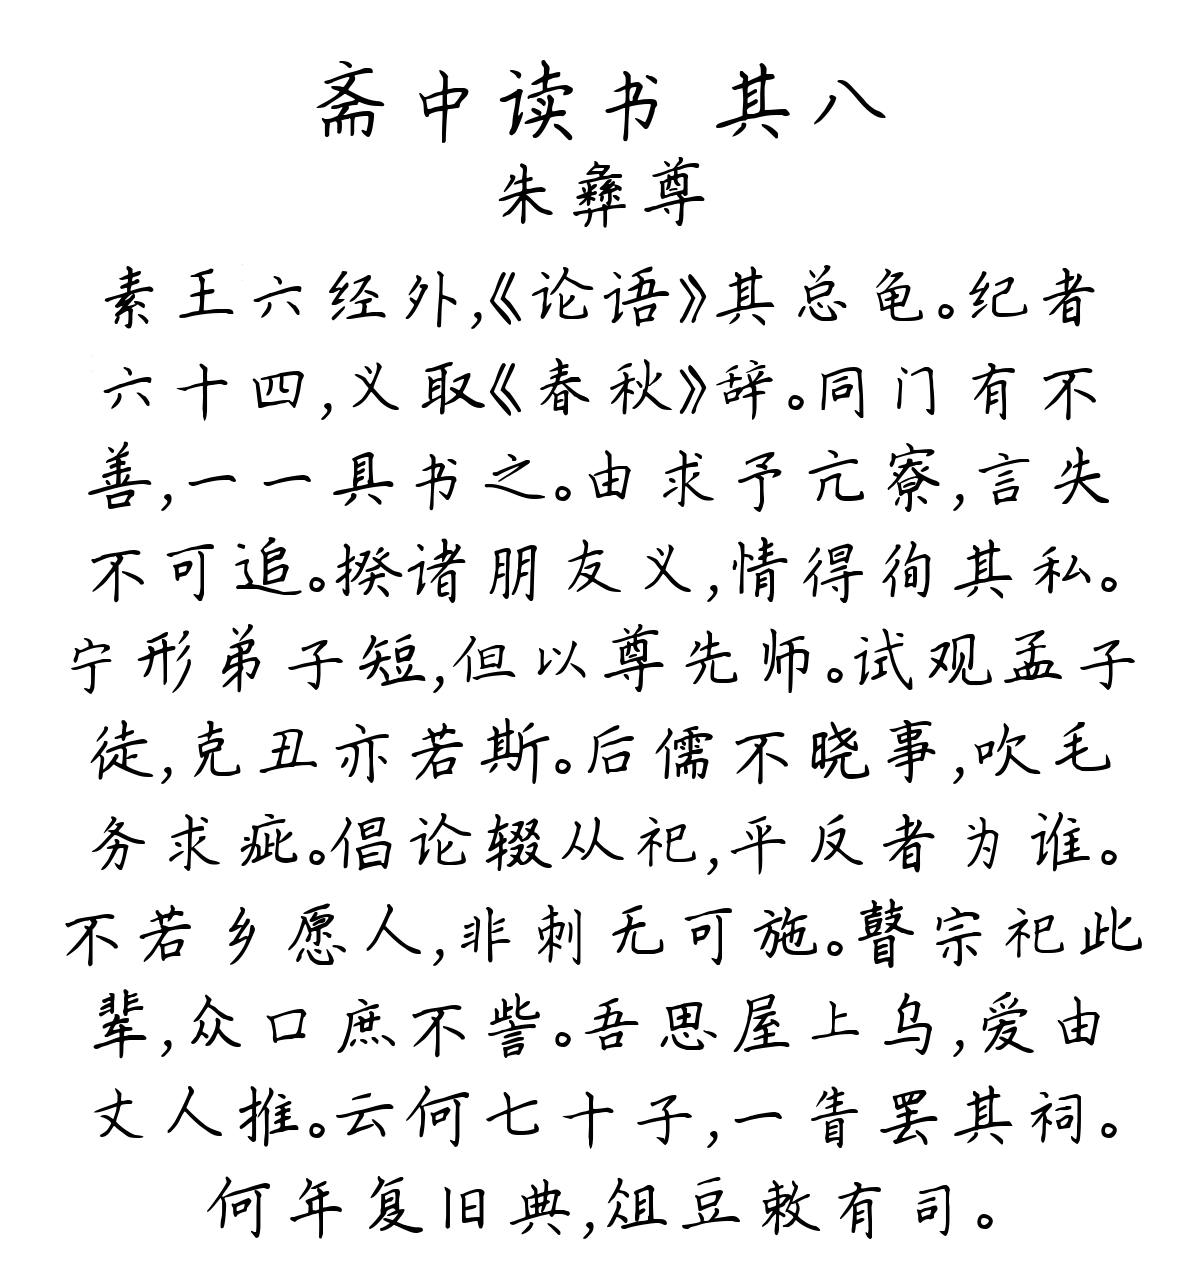 斋中读书 其八
朱彝尊
素王六经外,《论语》其总龟。纪者
六十四,义取《春秋》辞。同门有不
善,一一具书之。由求予亢寮,言失
不可追。揆诸朋友义,情得徇其私。
宁形弟子短,但以尊先师。试观孟子
徒,克丑亦若斯。后儒不晓事,吹毛
务求疵。倡论辍从祀,平反者为谁。
不若乡愿人,非刺无可施。瞽宗祀此
辈,众口庶不訾。吾思屋上乌,爱由
丈人推。云何七十子,一眚罢其祠。
何年复旧典,俎豆敕有司。